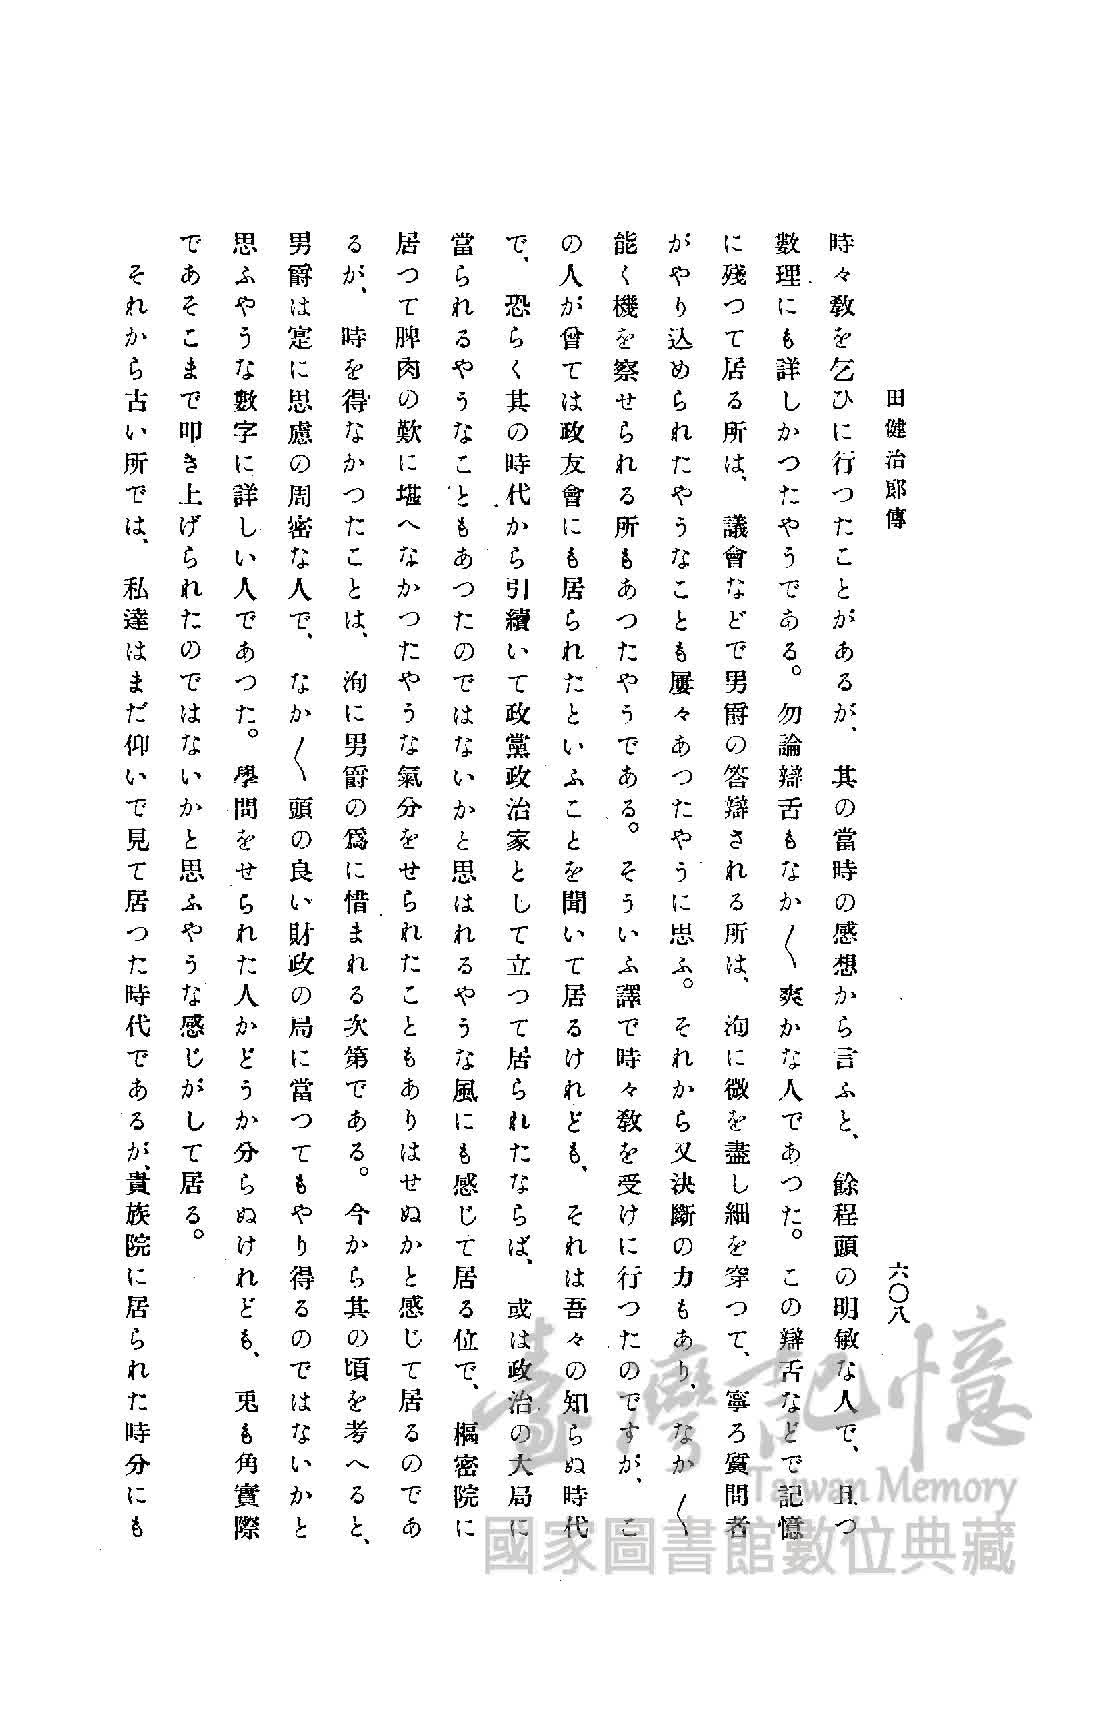 田健治郎傳
六〇八
時々敎を乞ひに行つたことがあるが、其の當時の感想から言ふと、餘程頭の明敏な人で、且つ
數理にも詳しかつたやうである。勿論辯舌もなか〱爽かな人であつた。この辯舌などで記憶
に殘つて居る所は、議會などで男爵の答辯される所は、洵に微を盡し細を穿つて、寧ろ質問者
がやり込められたやうなことも屢々あつたやうに思ふ。それから又決斷の力もあり、なか〱
能く機を察せられる所もあつたやうである。そういふ譯で時々敎を受けに行つたのですが、こ
の人が曾ては政友會にも居られたといふことを聞いて居るけれども、それは吾々の知らぬ時代
で、恐らく其の時代から引續いて政黨政治家として立つて居られたならば、或は政治の大局に
當られるやうなこともあつたのではないかと思はれるやうな風にも感じて居る位で、樞密院に
居つて脾肉の歎に堪へなかつたやうな氣分をせられたこともありはせぬかと感じて居るのであ
るが、時を得なかつたことは、洵に男爵の爲に惜まれる次第である。今から其の頃を考へると、
男爵は寔に思慮の周密な人で、なか〱頭の良い財政の局に當つてもやり得るのではないかと
思ふやうな數字に詳しい人であつた。學問をせられた人かどうか分らぬけれども、兎も角實際
であそこまで叩き上げられたのではないかと思ふやうな感じがして居る。
それから古い所では、私達はまだ仰いで見て居つた時代であるが、貴族院に居られた時分にも
臺灣記憶
Taiwan Memory
國家圖書館數位典藏